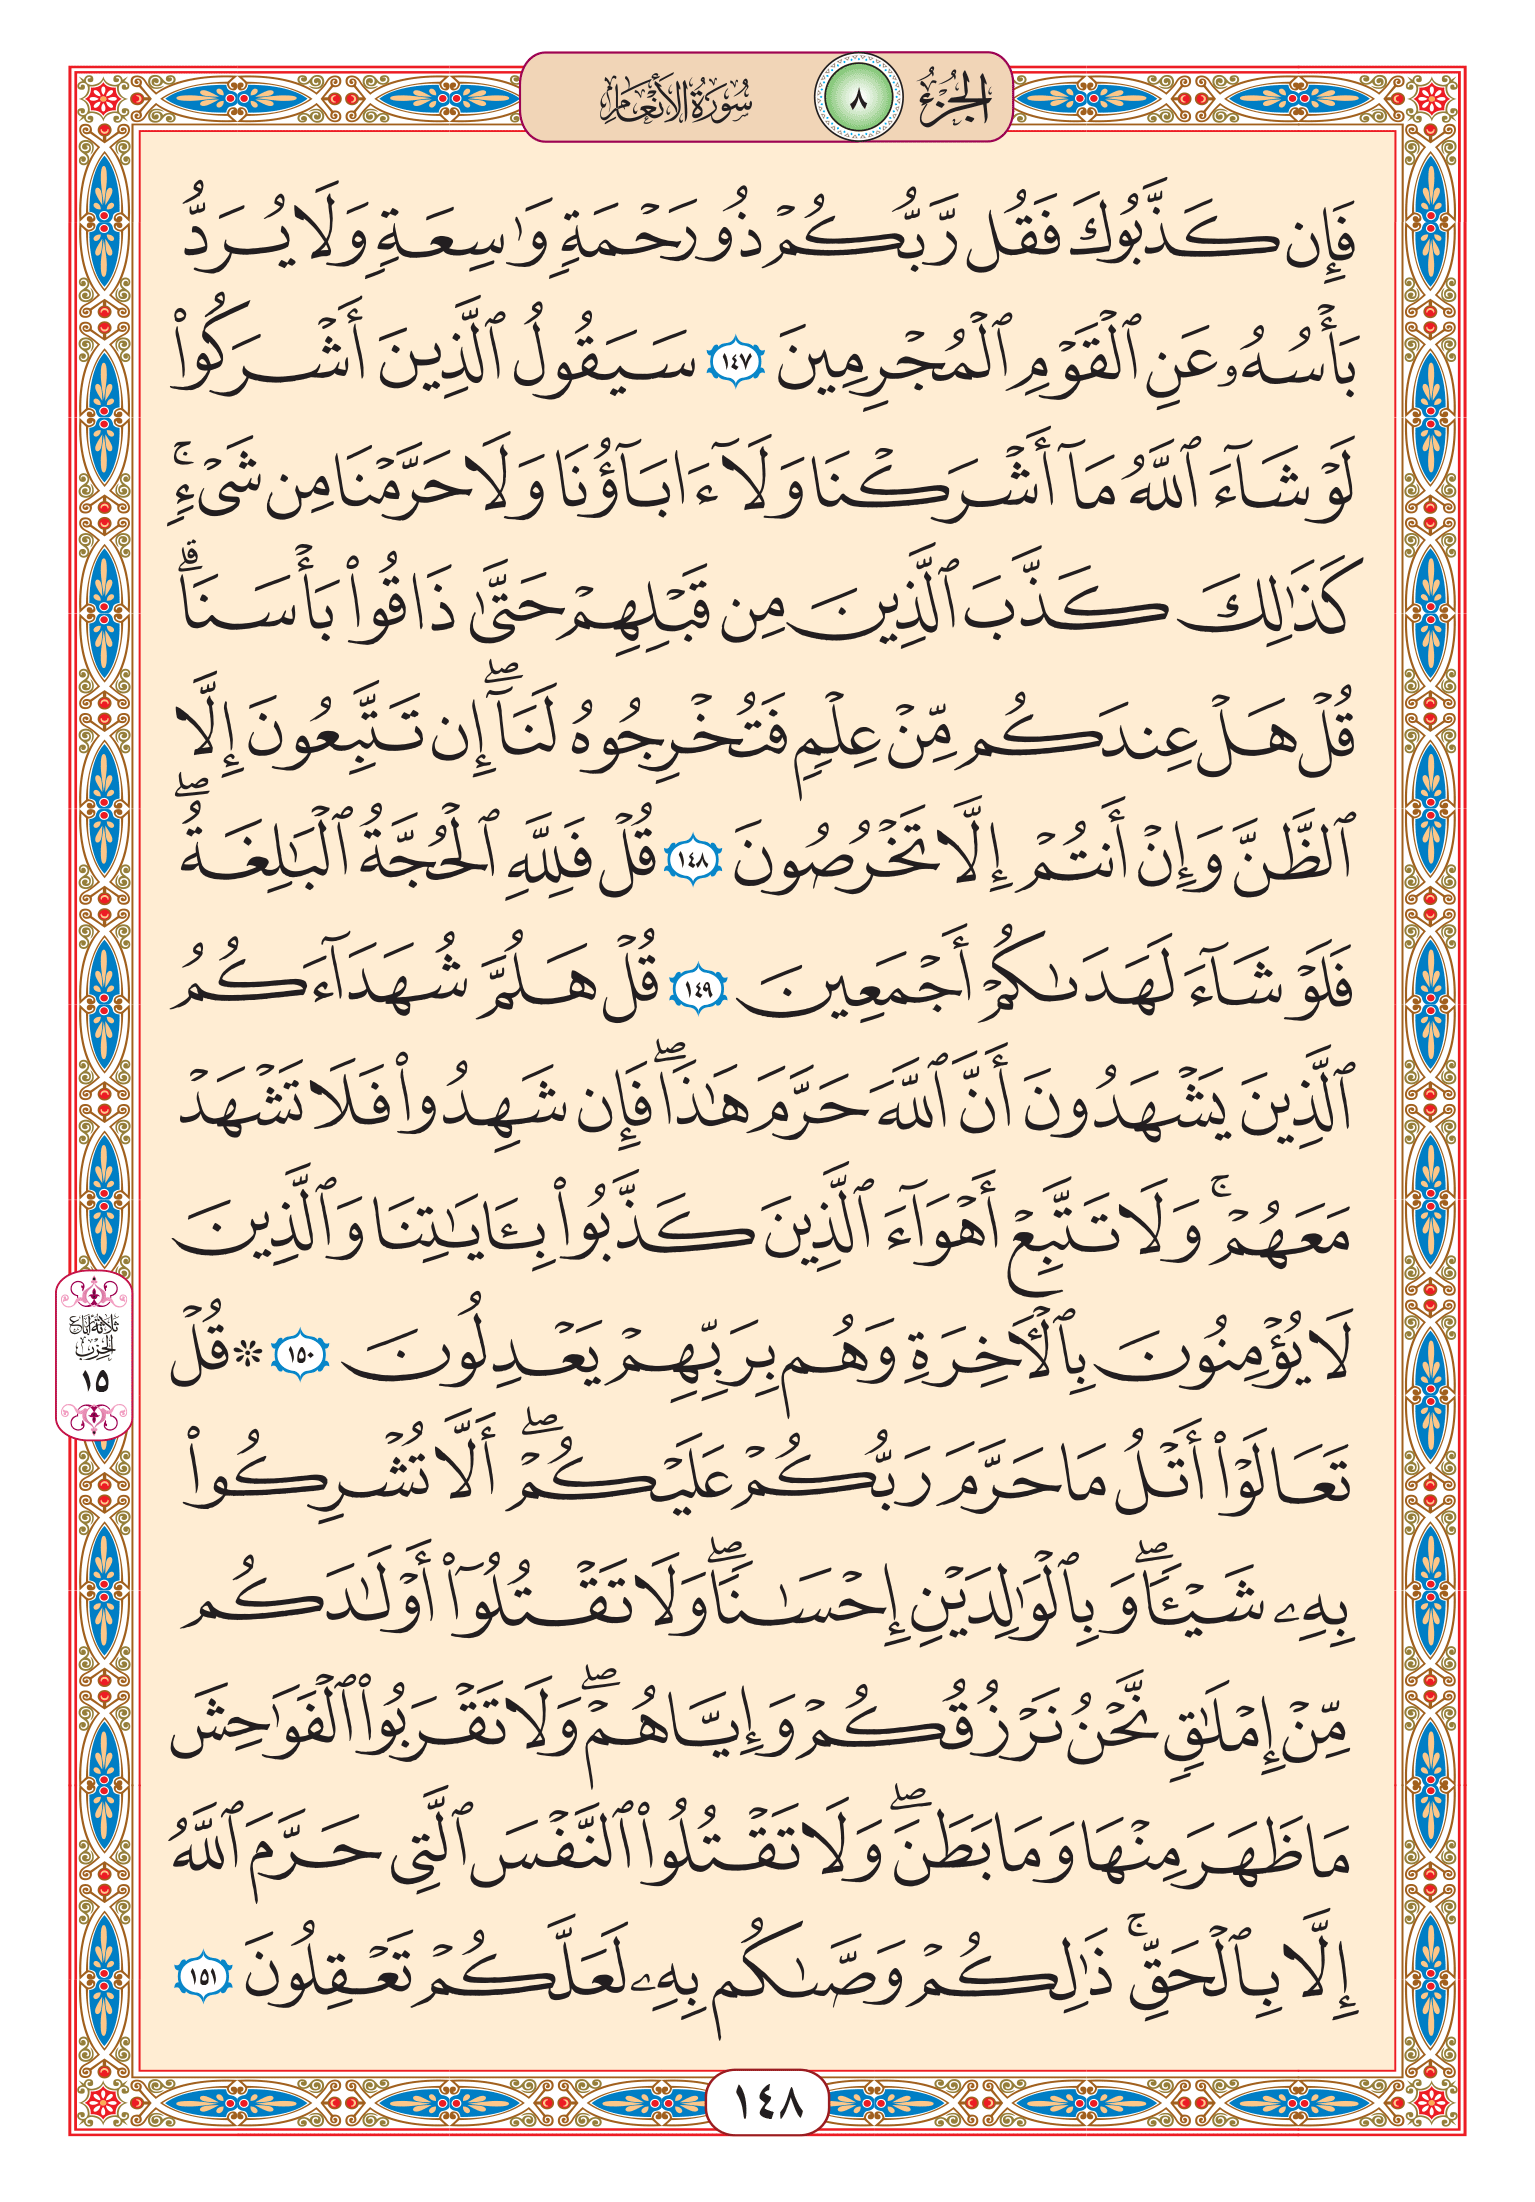 الجزء ٨ سورة الأنعام
فَإِن كَذَّبُوكَ فَقُل رَّبُّكُمْ ذُو رَحْمَةٍ وَٰسِعَةٍ وَلَا يُرَدُّ
بَأْسُهُۥ عَنِ ٱلْقَوْمِ ٱلْمُجْرِمِينَ ١٤٧ سَيَقُولُ ٱلَّذِينَ أَشْرَكُوا۟
لَوْ شَآءَ ٱللَّهُ مَآ أَشْرَكْنَا وَلَآ ءَابَآؤُنَا وَلَا حَرَّمْنَا مِن شَىْءٍ ۚ
كَذَٰلِكَ كَذَّبَ ٱلَّذِينَ مِن قَبْلِهِمْ حَتَّىٰ ذَاقُوا۟ بَأْسَنَا ۗ
قُلْ هَلْ عِندَكُم مِّنْ عِلْمٍ فَتُخْرِجُوهُ لَنَآ ۖ إِن تَتَّبِعُونَ إِلَّا
ٱلظَّنَّ وَإِنْ أَنتُمْ إِلَّا تَخْرُصُونَ ١٤٨ قُلْ فَلِلَّهِ ٱلْحُجَّةُ ٱلْبَٰلِغَةُ ۖ
فَلَوْ شَآءَ لَهَدَىٰكُمْ أَجْمَعِينَ ١٤٩ قُلْ هَلُمَّ شُهَدَآءَكُمُ
ٱلَّذِينَ يَشْهَدُونَ أَنَّ ٱللَّهَ حَرَّمَ هَٰذَا ۖ فَإِن شَهِدُوا۟ فَلَا تَشْهَدْ
مَعَهُمْ ۚ وَلَا تَتَّبِعْ أَهْوَآءَ ٱلَّذِينَ كَذَّبُوا۟ بِـَٔايَٰتِنَا وَٱلَّذِينَ
لَا يُؤْمِنُونَ بِٱلْـَٔاخِرَةِ وَهُم بِرَبِّهِمْ يَعْدِلُونَ ١٥٠ ۞ قُلْ
ثلاثة أرباع
الحزب
١٥
تَعَالَوْا۟ أَتْلُ مَا حَرَّمَ رَبُّكُمْ عَلَيْكُمْ ۖ أَلَّا تُشْرِكُوا۟
بِهِۦ شَيْـًٔا ۖ وَبِٱلْوَٰلِدَيْنِ إِحْسَٰنًا ۖ وَلَا تَقْتُلُوٓا۟ أَوْلَٰدَكُم
مِّنْ إِمْلَٰقٍ نَّحْنُ نَرْزُقُكُمْ وَإِيَّاهُمْ ۖ وَلَا تَقْرَبُوا۟ ٱلْفَوَٰحِشَ
مَا ظَهَرَ مِنْهَا وَمَا بَطَنَ ۖ وَلَا تَقْتُلُوا۟ ٱلنَّفْسَ ٱلَّتِى حَرَّمَ ٱللَّهُ
إِلَّا بِٱلْحَقِّ ۚ ذَٰلِكُمْ وَصَّىٰكُم بِهِۦ لَعَلَّكُمْ تَعْقِلُونَ ١٥١
١٤٨